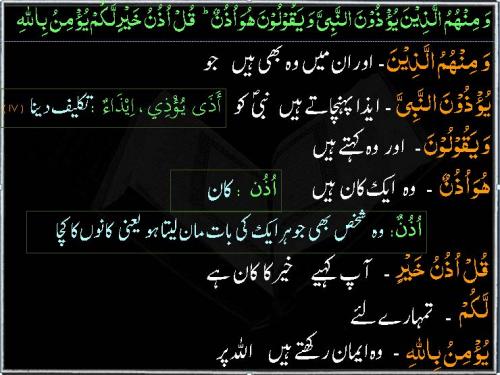 وَ مِنْهُمُ الَّذِيْنَ يُؤْذُوْنَ النَّبِيَّ وَ يَقُوْلُوْنَ هُوَ اُذُنٌ ؕ قُلْ اُذُنُ خَيْرٍ لَّكُمْ يُؤْمِنُ بِاللّٰهِ
وَ مِنْهُمُ الَّذِيْنَ - اور ان میں وہ بھی ہیں جو
يُؤْذُوْنَ النَّبِيَّ - ایذا پہنچاتے ہیں نبیؐ کو أَذَى يُؤْذِي ، اِيْذَاءً : تکلیف دینا (IV)
وَ يَقُوْلُوْنَ - اور وہ کہتے ہیں
هُوَ اُذُنٌ - وہ ایک کان ہیں اُذُن : کان
اُذُنٌ : وہ شخص بھی جو ہر ایک کی بات مان لیتا ہو یعنی کانوں کا کچا
قُلْ اُذُنُ خَيْرٍ - آپ کہیے خیر کا کان ہے
لَّكُمْ - تمہارے لئے
يُؤْمِنُ بِاللّٰهِ - وہ ایمان رکھتے ہیں اللہ پر